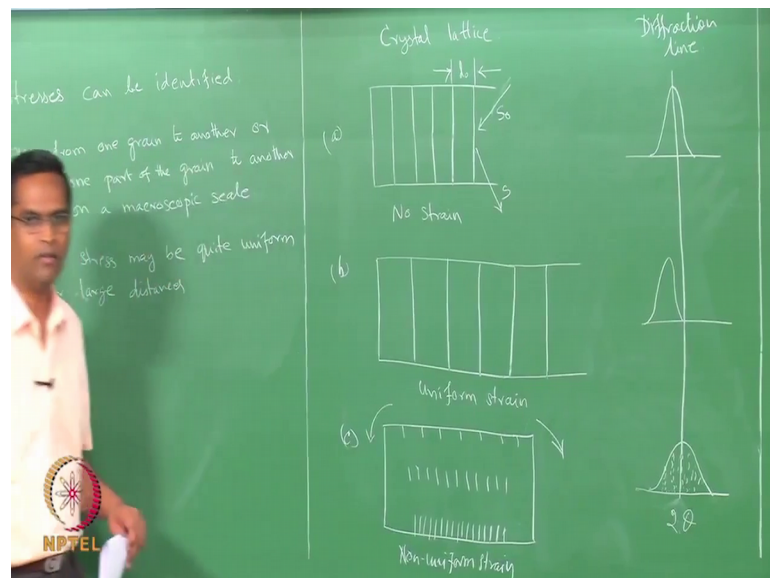 tresses can be identified
from one grain to another or
one part of the grain to another
on a macroscopic scale
stress may be quite uniform
large distances
Crystal lattice
Diffraction
line
(a)
d₀
S₀
S
No strain
(b)
Uniform strain
(c)
Non-uniform strain
2θ
NPTEL